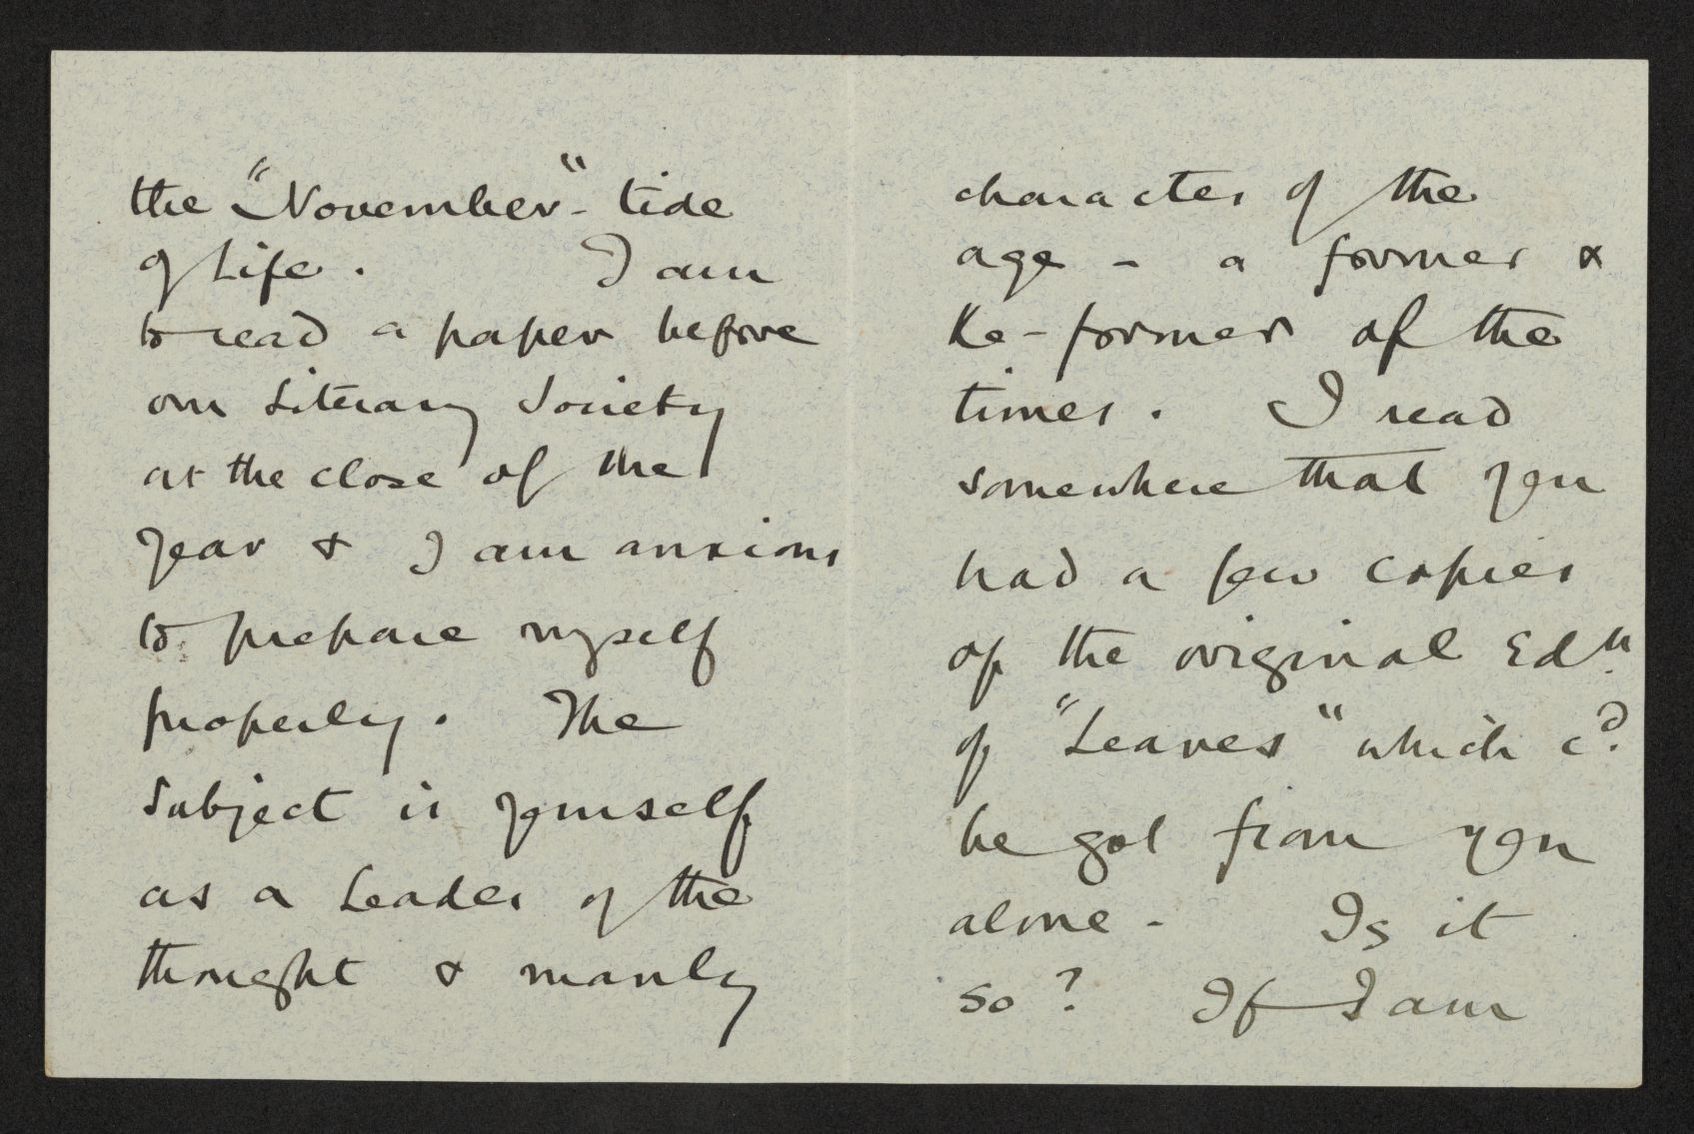 the "November"-tide
of Life. I am
to read a paper before
our Literary Society
at the close of the
year & I am anxious
to prepare myself
properly. The
subject is yourself
as a Leader of the
thought & manly
character of the
age - a former &
Re-former of the
times. I read
somewhere that you
had a few copies
of the original Edn.
of "Leaves" which cd.
be got from you
alone - Is it
so? If I am